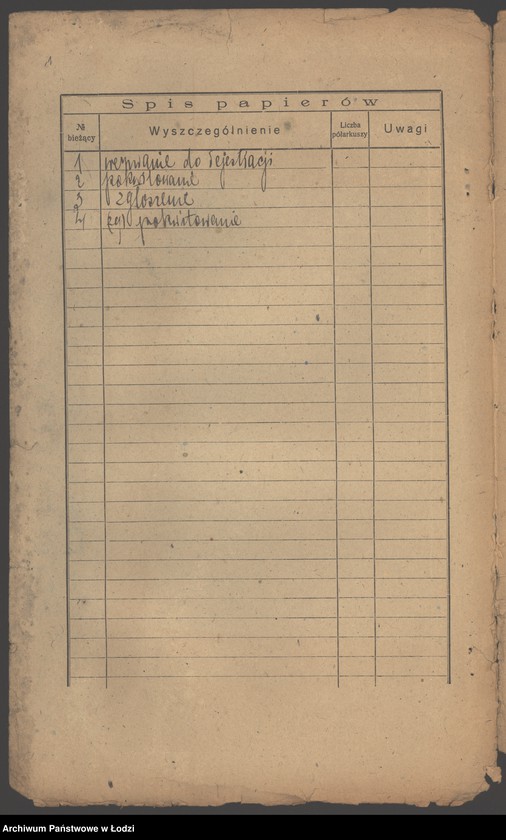 Spis papierów
№ bieżący
Wyszczególnienie
Liczba półarkuszy
Uwagi
1 wezwanie do rejestracji
2 pokwitowanie
3 zgłoszenie
4 pokwitowanie
Archiwum Państwowe w Łodzi